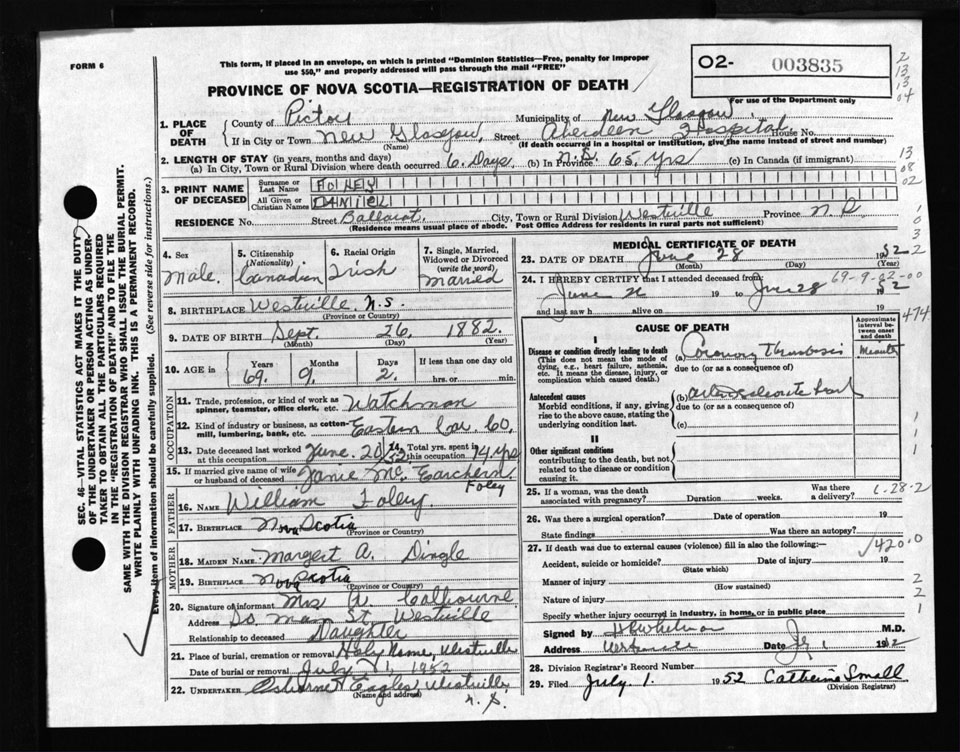 FORM 6
This form, if placed in an envelope, on which is printed "Dominion Statistics—Free, penalty for improper
use $50," and properly addressed will pass through the mail "FREE"
O2- 003835
For use of the Department only
PROVINCE OF NOVA SCOTIA—REGISTRATION OF DEATH
1. PLACE OF DEATH
County of Pictou Municipality of New Glasgow
If in City or Town New Glasgow Street Aberdeen Hospital House No.
(Name) (If death occurred in a hospital or institution, give the name instead of street and number)
2. LENGTH OF STAY (in years, months and days)
(a) In City, Town or Rural Division where death occurred 6 Days (b) In Province N.S. 65 yrs (c) In Canada (if immigrant)
3. PRINT NAME OF DECEASED
Surname or Last Name FOLEY
All Given or Christian Names DANIEL
RESIDENCE No. Street City, Town or Rural Division Westville Province
(Residence means usual place of abode. Post Office Address for residents in rural parts not sufficient)
4. Sex Male
5. Citizenship (Nationality) Canadian
6. Racial Origin Irish
7. Single, Married, Widowed or Divorced (write the word) Married
8. BIRTHPLACE Westville N.S.
(Province or Country)
9. DATE OF BIRTH Sept. 26, 1882
(Month) (Day) (Year)
10. AGE IN Years 69 Months 9 Days 2 If less than one day old hrs. or min.
OCCUPATION
11. Trade, profession, or kind of work as spinner, teamster, office clerk, etc. Watchman
12. Kind of industry or business, as cotton-mill, lumbering, bank, etc. Eastern Car Co.
13. Date deceased last worked at this occupation June 20 Total yrs. spent in this occupation yrs
15. If married give name of wife or husband of deceased Janie Mc Eachern Foley
FATHER
16. NAME William Foley
17. BIRTHPLACE Nova Scotia
(Province or Country)
MOTHER
18. MAIDEN NAME Margert A. Dingle
19. BIRTHPLACE Nova Scotia
(Province or Country)
20. Signature of informant Mrs
Address So. Main St. Westville
Relationship to deceased Daughter
21. Place of burial, cremation or removal Holy Name, Westville
Date of burial or removal July 1 1952
22. UNDERTAKER Osborne H Eagles Westville,
(Name and address)
N.S.
MEDICAL CERTIFICATE OF DEATH
23. DATE OF DEATH June 28 1952
(Month) (Day) (Year)
24. I HEREBY CERTIFY that I attended deceased from:
June 19 to June 28 1952
and last saw h alive on 19
69-9-02-00
CAUSE OF DEATH
Approximate interval between onset and death
I
Disease or condition directly leading to death
(This does not mean the mode of dying, e.g., heart failure, asthenia, etc. It means the disease, injury, or complication which caused death.)
(a) Coronary Thrombosis Minutes
due to (or as a consequence of)
Antecedent causes
Morbid conditions, if any, giving rise to the above cause, stating the underlying condition last.
(b)
due to (or as a consequence of)
(c)
II
Other significant conditions
contributing to the death, but not related to the disease or condition causing it.
25. If a woman, was the death associated with pregnancy? Duration weeks. Was there a delivery?
26. Was there a surgical operation? Date of operation 19
State findings Was there an autopsy?
27. If death was due to external causes (violence) fill in also the following:
Accident, suicide or homicide? Date of injury 19
(State which)
Manner of injury
(How sustained)
Nature of injury
Specify whether injury occurred in industry, in home, or in public place
Signed by M.D.
Address Westville Date 1952
28. Division Registrar's Record Number
29. Filed July 1. 1952 Catherine Small
(Division Registrar)
SEC. 46—VITAL STATISTICS ACT MAKES IT THE DUTY
OF THE UNDERTAKER OR PERSON ACTING AS UNDER-
TAKER TO OBTAIN ALL THE PARTICULARS REQUIRED
IN THE "REGISTRATION OF DEATH" AND TO FILE THE
SAME WITH THE DIVISION REGISTRAR WHO SHALL ISSUE THE BURIAL PERMIT.
WRITE PLAINLY WITH UNFADING INK. THIS IS A PERMANENT RECORD.
Every item of information should be carefully supplied. (See reverse side for instructions.)